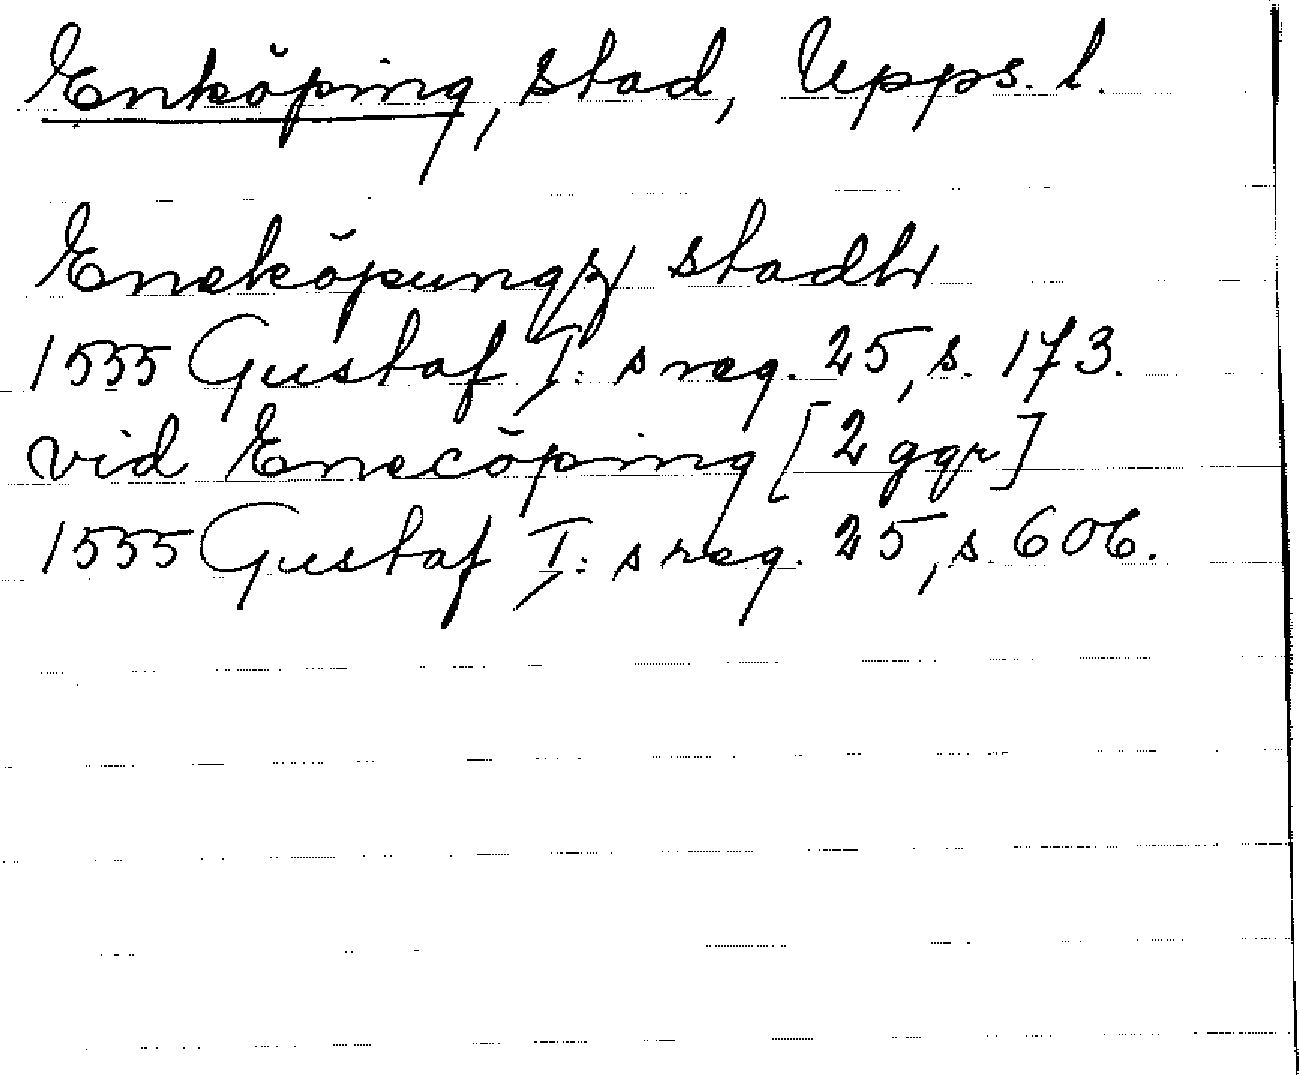 Enköping, stad, Upps. l.
Eneköpung/z/ stadh
1555 Gustaf I:s reg. 25, s. 173.
vid Enecöping [2 ggr]
1555 Gustaf I:s reg. 25, s 606.